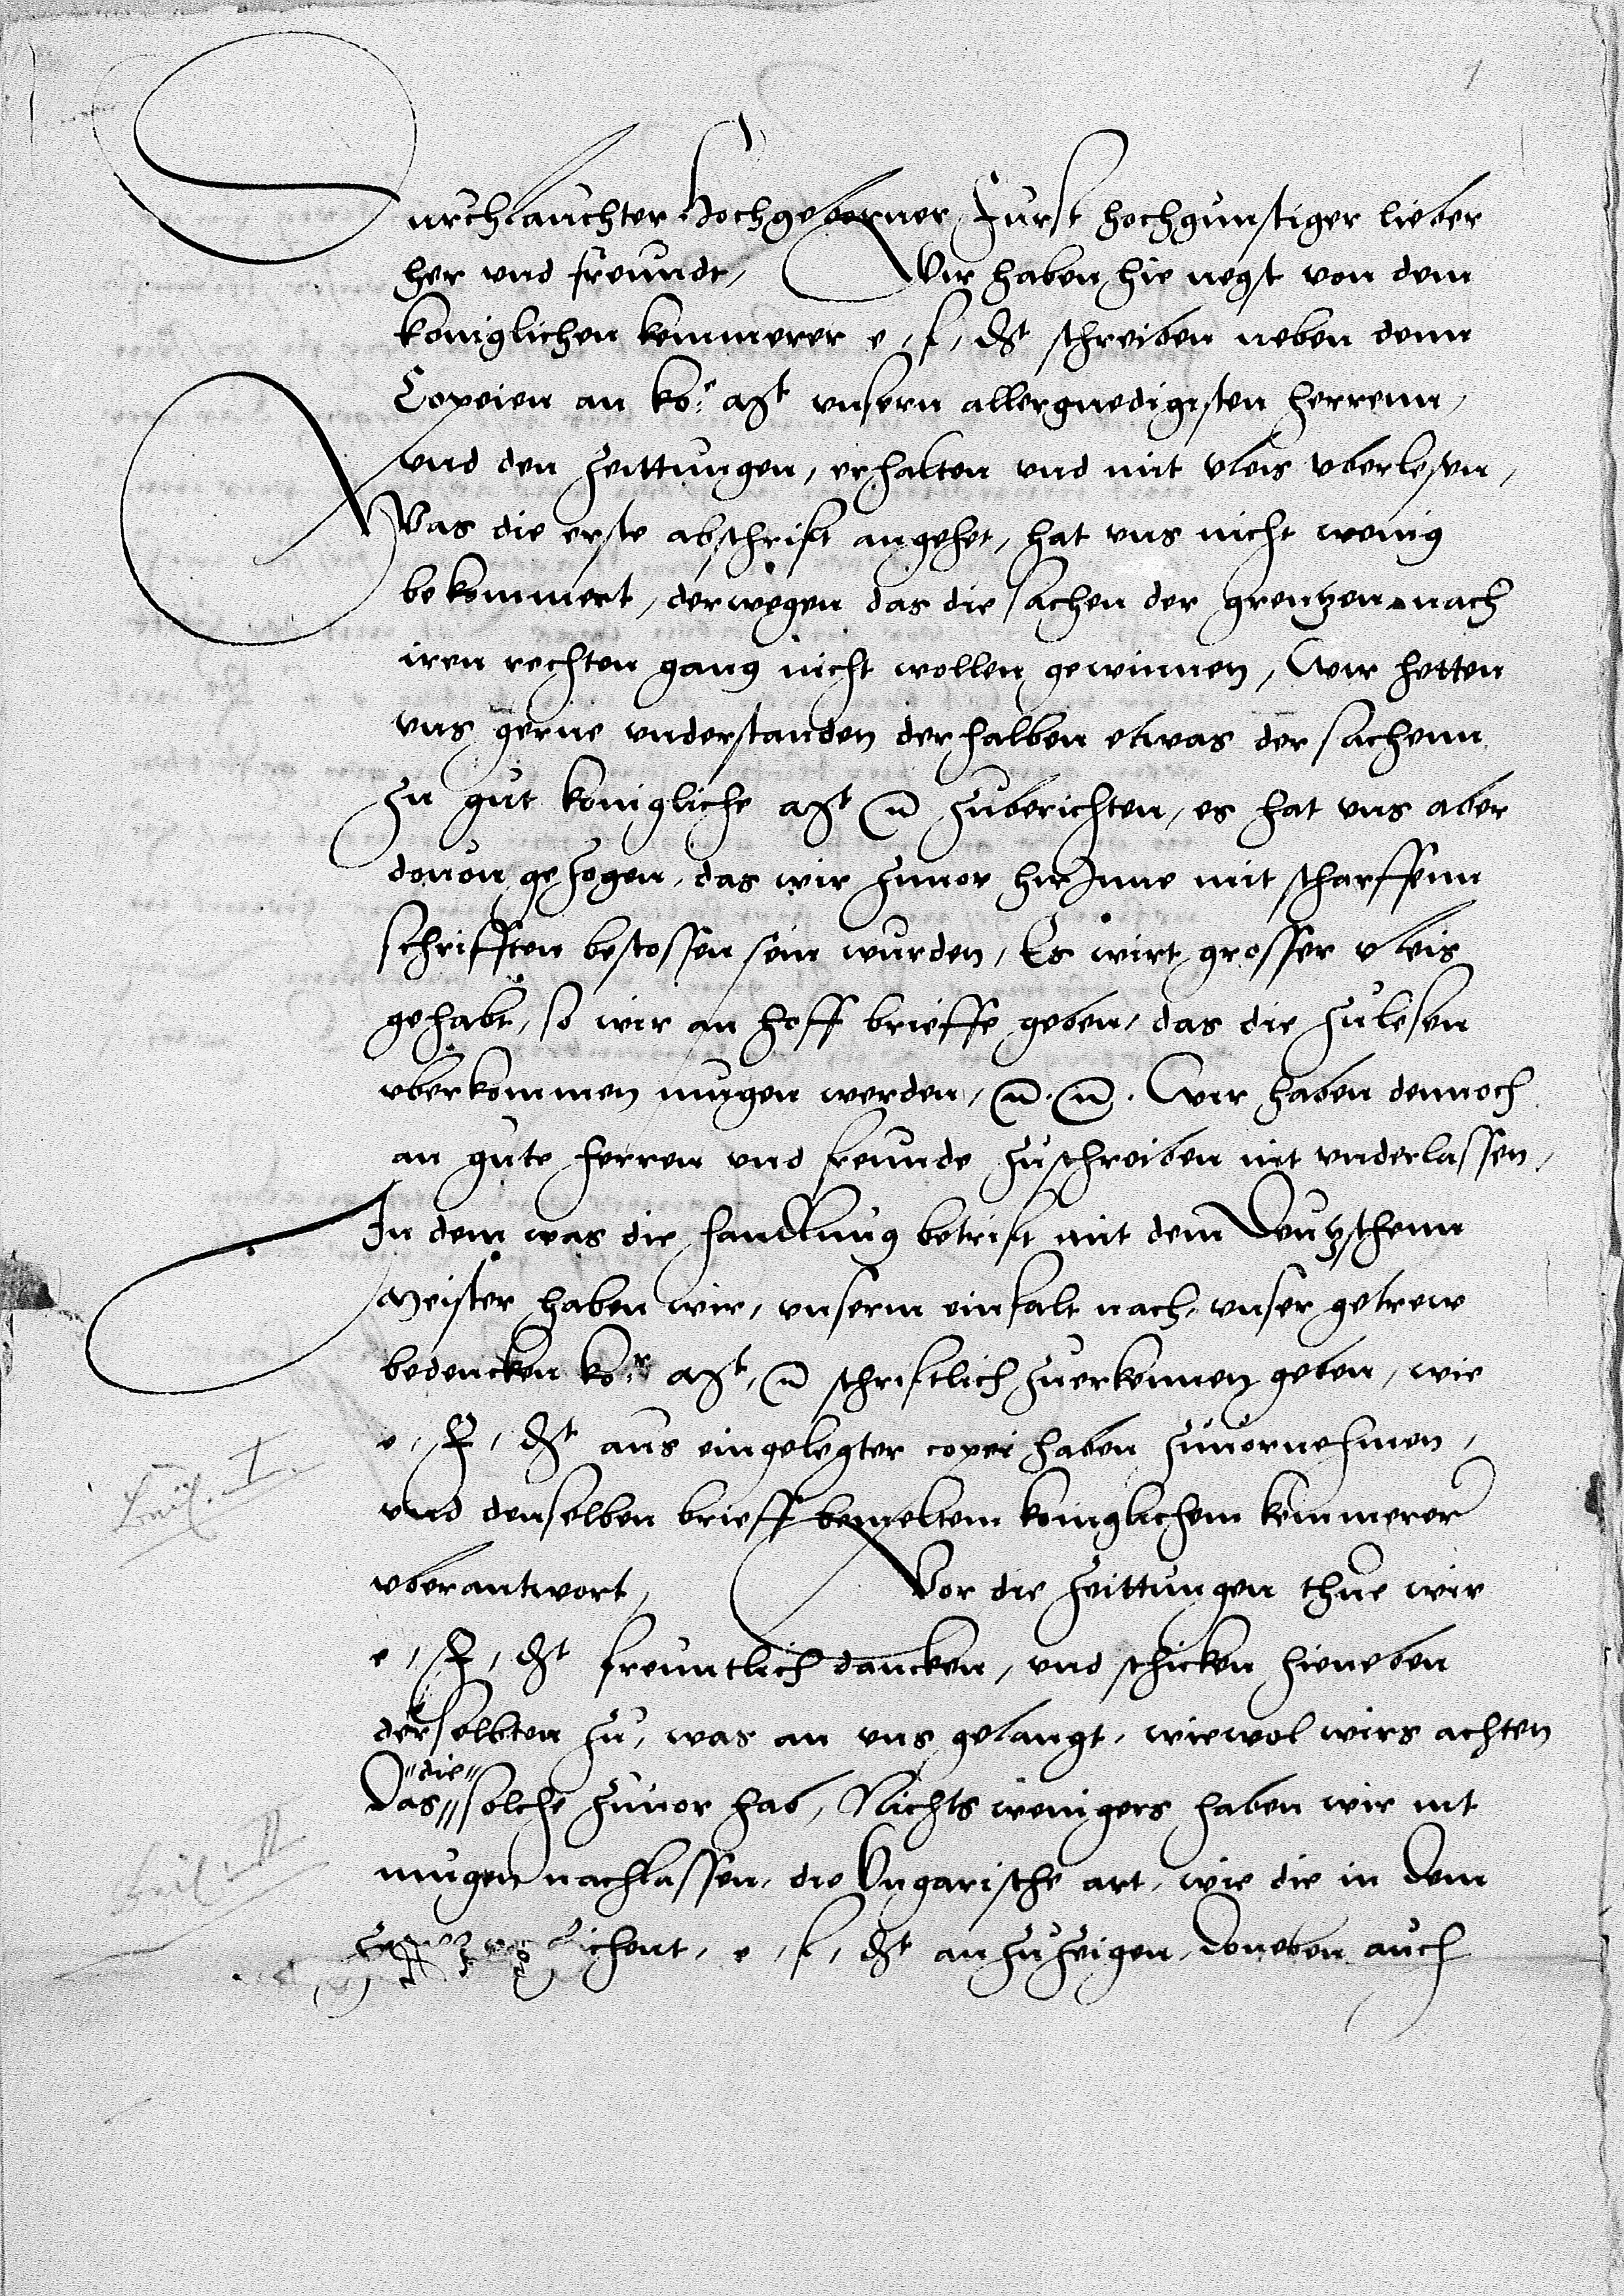 1
Durchlauchter Hochgeborner Furst hochgunstiger lieber
her vnd freundt, Wir haben hie negst von dem
koniglichen kemmerer e, f, dt schreiben neben denn
Copeien an ko:e Mt vnsern allergnedigsten herrenn,
vnd den Zeittungen, erhalten vnd mit vleis vberlesen,
Was die erste abschrift angehet, hat vns nicht wenig
bekommert, derwegen das die sachen der grentzen nach
iren rechten gang nicht wollen gewinnen, Wir hetten
vns gerne vnderstanden derhalben etwas der sachenn
zu gut konigliche Mt zuberichten, es hat vns aber
douon gezogen, das wir zuuor hirinne mit scharffenn
schrifften bestossen sein wurden, Es wirt grosser vleis
gehabt, so wir an hoff brieffe geben, das die zulesen
vberkommen mugen werden, Wir haben dennoch
an gute herren vnd freunde zuschreiben nit vnderlassen,
In dem was die handlung betrift mit dem Deutzschenn
Meister haben wir, vnserm einfalt nach, vnser getrew
bedencken ko:r Mt, schriftlich zuerkennen geben, wie
e, F, dt aus eingelegter copei haben zuuornehmen,
vnd denselben brieff bemeltem koniglichem kemmerer
vberantwort, Vor die Zeittungen thue wir
e, F, dt freuntlich dancken, vnd schicken hieneben
derselbten zu, was an vns gelangt, wiewol wirs achten
die
Das solche zuuor hab, Nichts wenigers haben wir nit
mugen nachlassen, die Vngarische art, wie die in dem
e, f, dt anzuzeigen, Doneben auch
Beil. I.
Beil. II